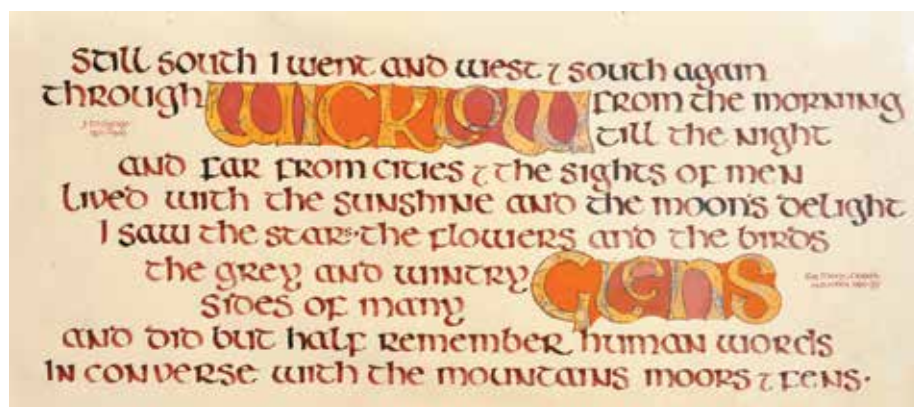 Still south I went and west ⁊ south again
through WICKLOW from the morning
till the night
and far from cities ⁊ the sights of men
lived with the sunshine and the moon's delight
I saw the stars·the flowers and the birds
the grey and wintry GLENS
sides of many
and did but half remember human words
In converse with the mountains moors ⁊ fens.